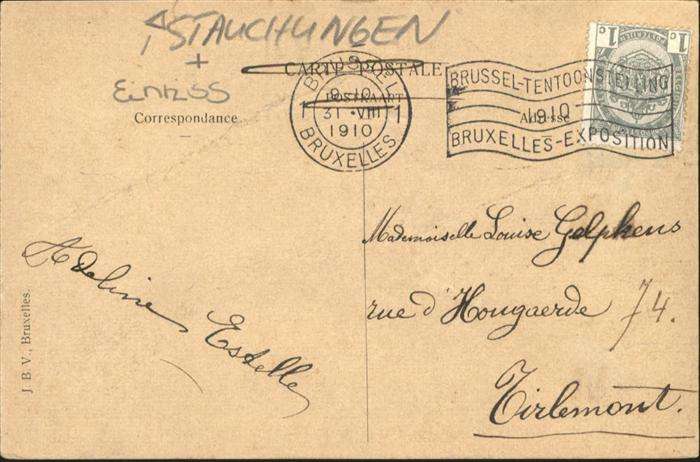 STAUCHUNGEN
+
EINRISS
CARTE POSTALE
POSTKAART
Correspondance
Adresse
BRUSSEL
9-10
1 31 · VIII 1
1910
BRUXELLES
BRUSSEL-TENTOONSTELLING
1910
BRUXELLES-EXPOSITION
1c 1c
Mademoiselle Louise Gelpkens
rue d'Hougaerde 74.
Tirlemont.
Adeline Estelle
J. B. V., Bruxelles.